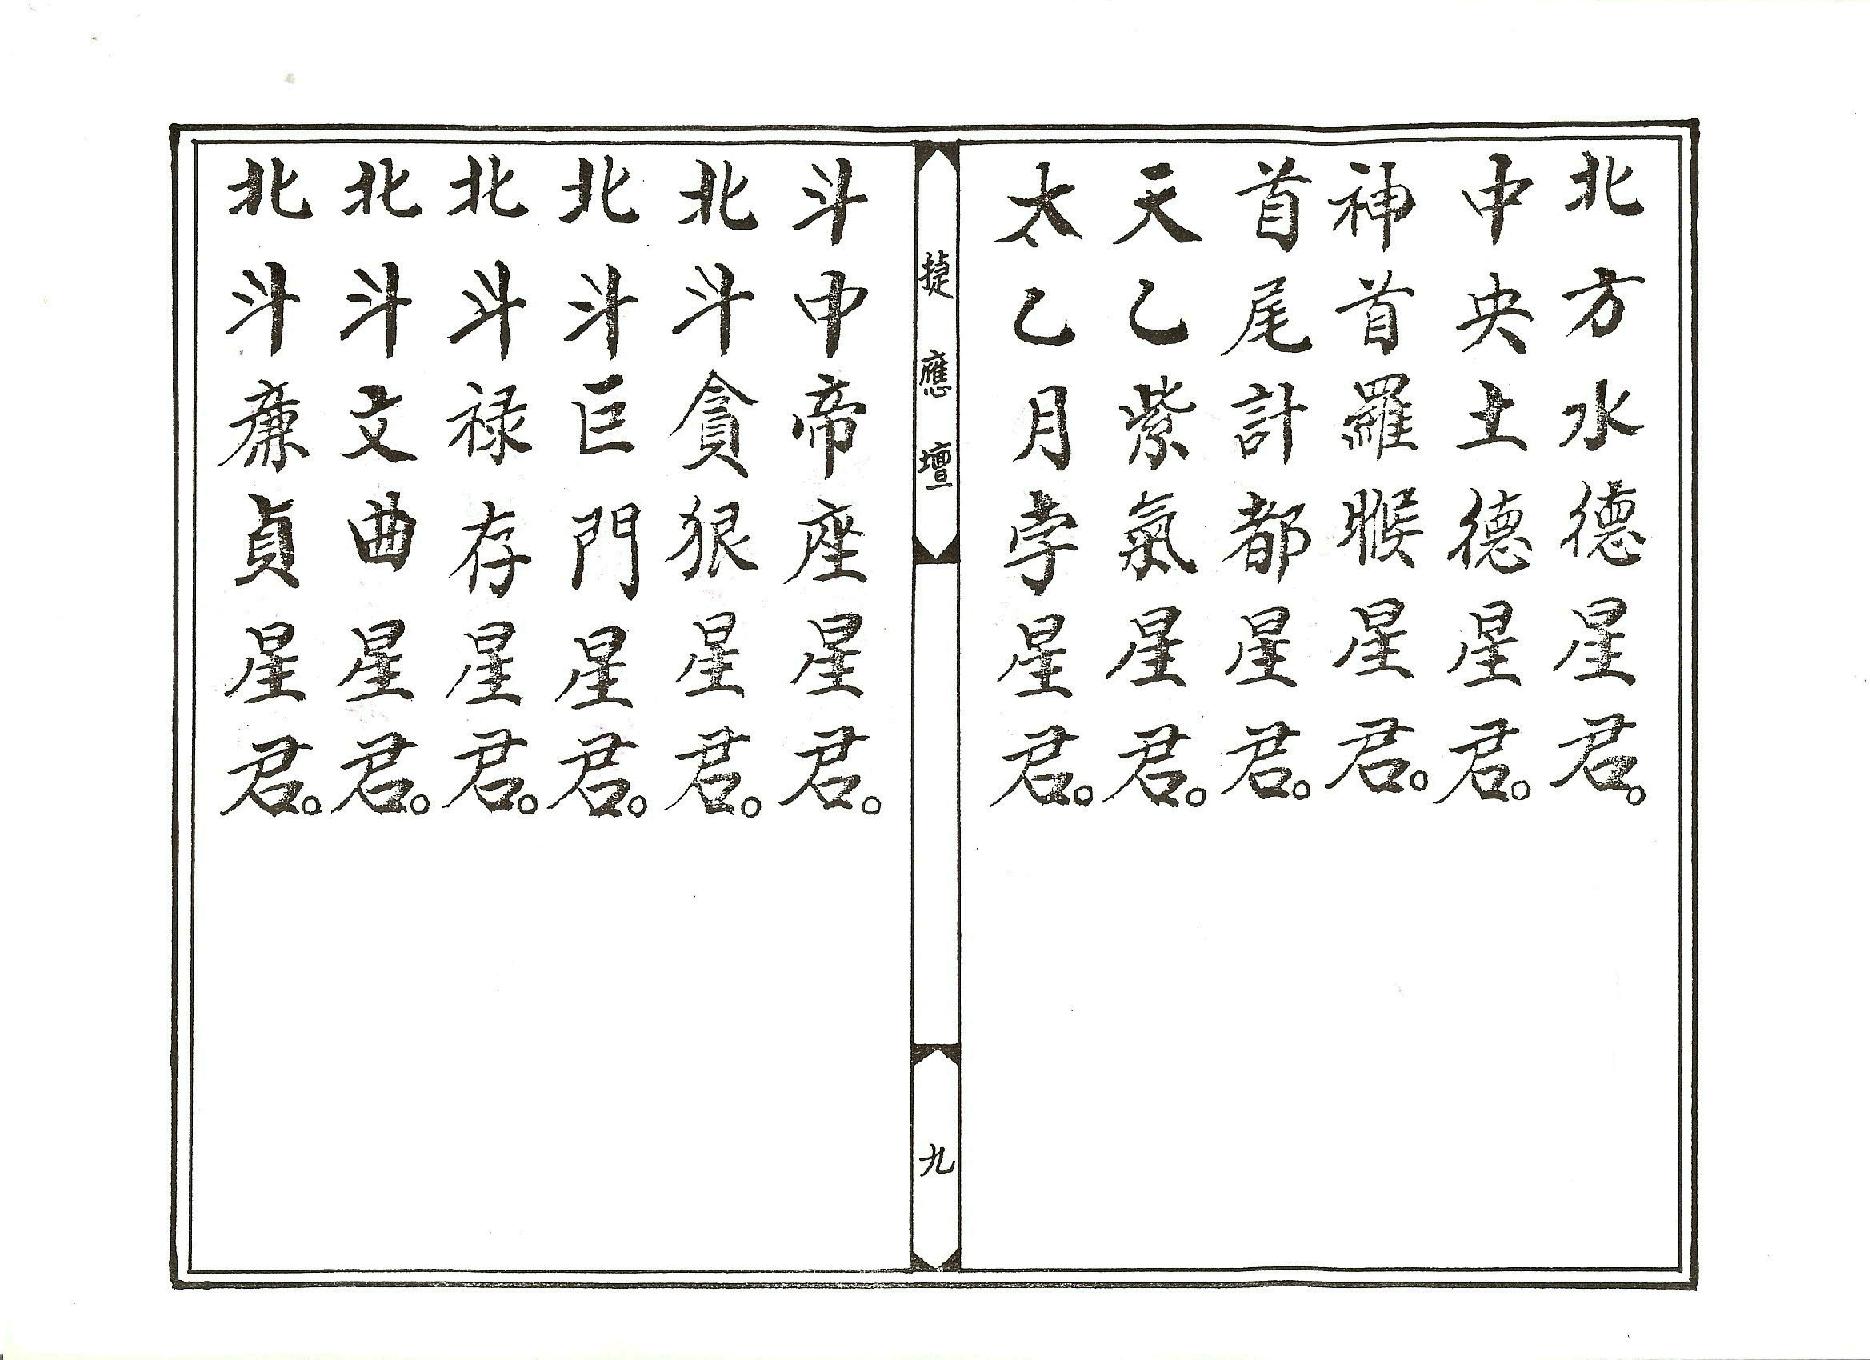 北方水德星君。
中央土德星君。
神首羅睺星君。
首尾計都星君。
天乙紫氣星君。
太乙月孛星君。
捷應壇
九
斗中帝座星君。
北斗貪狠星君。
北斗巨門星君。
北斗禄存星君。
北斗文曲星君。
北斗廉貞星君。